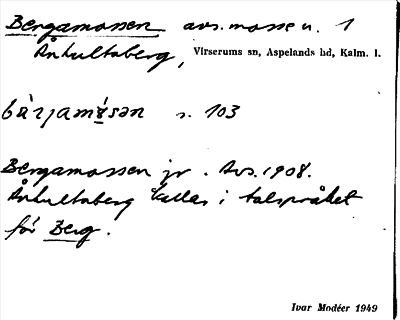 Bergamossen avs. mosse u. 1
Ånhultaberg, Virserums sn, Aspelands hd, Kalm. l.
s. 103
Bergamossen jr. Avs. 1908.
Ånhultaberg kallas i talspråket
för Berg.
Ivar Modéer 1949